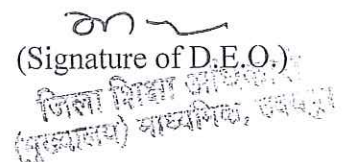 (Signature of D.E.O.)
जिला शिक्षा अधिकारी
(मुख्यालय) माध्यमिक, उदयपुर